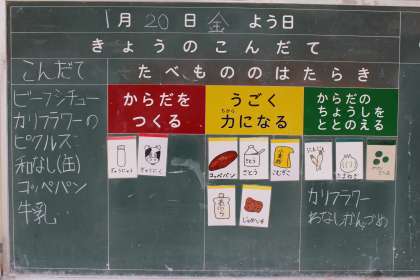 1月20日金よう日
きょうのこんだて
こんだて
たべもののはたらき
ビーフシチュー
カリフラワーの
ピクルス
和なし(缶)
コッペパン
牛乳
からだを
つくる
うごく
力になる
ちから
からだの
ちょうしを
ととのえる
ぎゅうにゅう
ぎゅうにく
コッペパン
さとう
こむぎこ
あぶら
じゃがいも
にんじん
たまねぎ
カリフラワー
わなしかんづめ